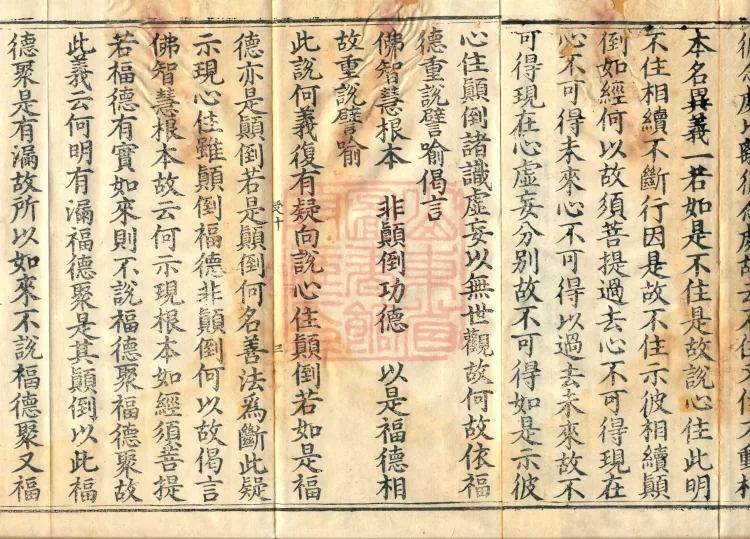 本名異義一若如是不住是故說心住此明
不住相續不斷行因是故不住示彼相續顛
倒如經何以故須菩提過去心不可得現在
心不可得未來心不可得以過去未來故不
可得現在心虛妄分別故不可得如是示彼
心住顛倒諸識虛妄以無世觀故何故依福
德重說譬喻偈言
佛智慧根本 非顛倒功德 以是福德相
故重說譬喻
此說何義復有疑向說心住顛倒若如是福
德亦是顛倒若是顛倒何名善法爲斷此疑
示現心住雖顛倒福德非顛倒何以故偈言
佛智慧根本故云何示現根本如經須菩提
若福德有實如來則不說福德聚福德聚故
此義云何明有漏福德聚是其顛倒以此福
德聚是有漏故所以如來不說福德聚又福
三